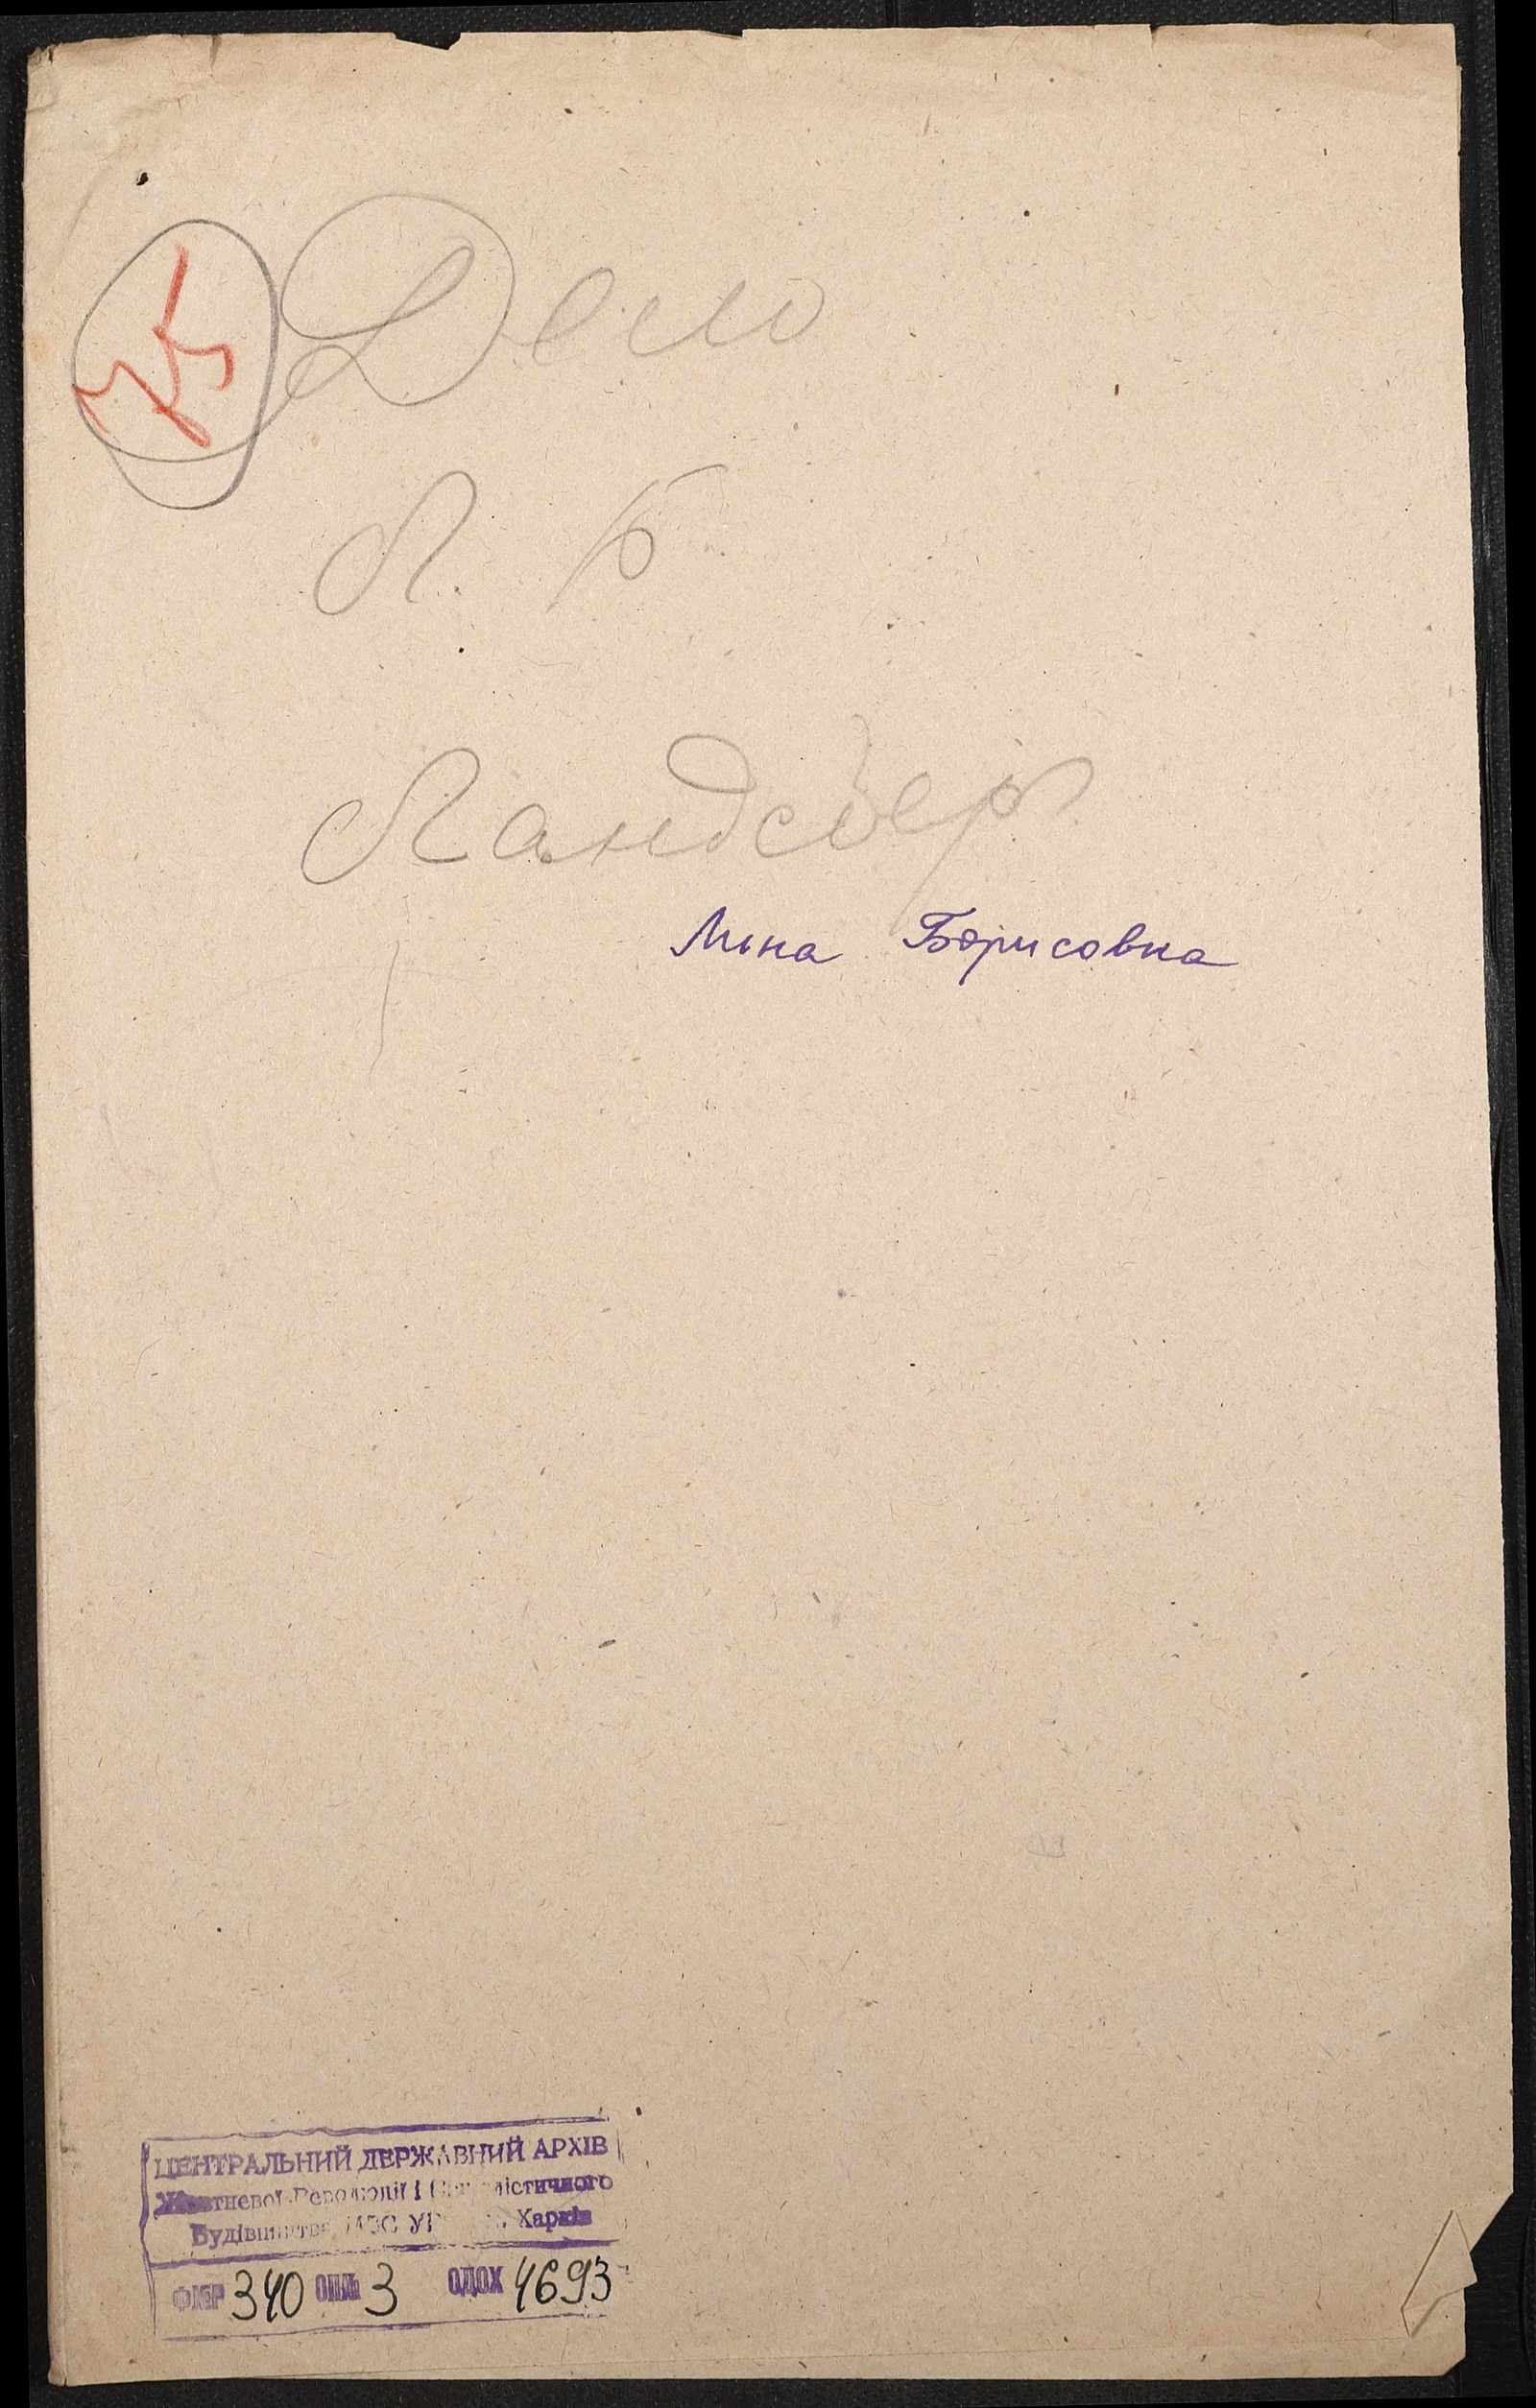 75
Дело
Л. Б
Ландсбер
Мина Борисовна
ЦЕНТРАЛЬНИЙ ДЕРЖАВНИЙ АРХІВ
Жовтневої Революції і Соціалістичного
Будівництва МВС УРСР Харків
ФМР 340 ОП№ 3 ОДОХ 4693